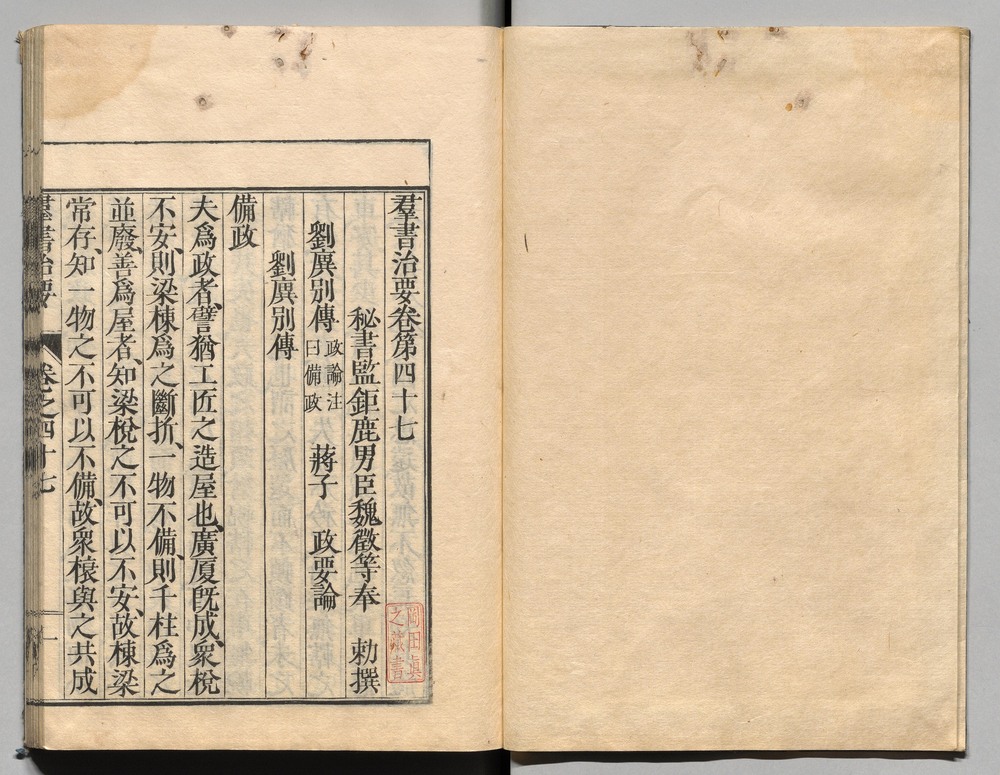 羣書治要卷第四十七
秘書監鉅鹿男臣魏徵等奉　勅撰
劉廙別傳 政論注曰備政　蔣子　政要論
劉廙別傳
備政
夫爲政者、譬猶工匠之造屋也、廣厦旣成、衆梲
不安、則梁棟爲之斷折、一物不備、則千柱爲之
並廢、善爲屋者、知梁梲之不可以不安、故棟梁
常存、知一物之不可以不備、故衆榱與之共成
羣書治要　卷之四十七　一
之藏書